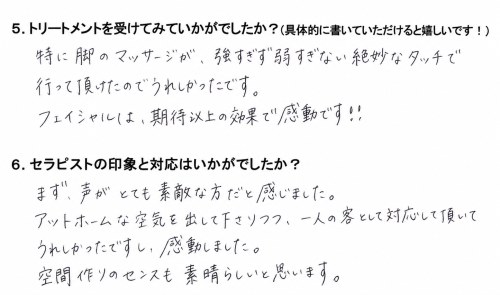 5. トリートメントを受けてみていかがでしたか？(具体的に書いていただけると嬉しいです！)
特に脚のマッサージが、強すぎず弱すぎない絶妙なタッチで
行って頂けたのでうれしかったです。
フェイシャルは、期待以上の効果で感動です!!
6. セラピストの印象と対応はいかがでしたか？
まず、声がとても素敵な方だと感じました。
アットホームな空気を出して下さりつつ、一人の客として対応して頂いて
うれしかったですし、感動しました。
空間作りのセンスも素晴らしいと思います。